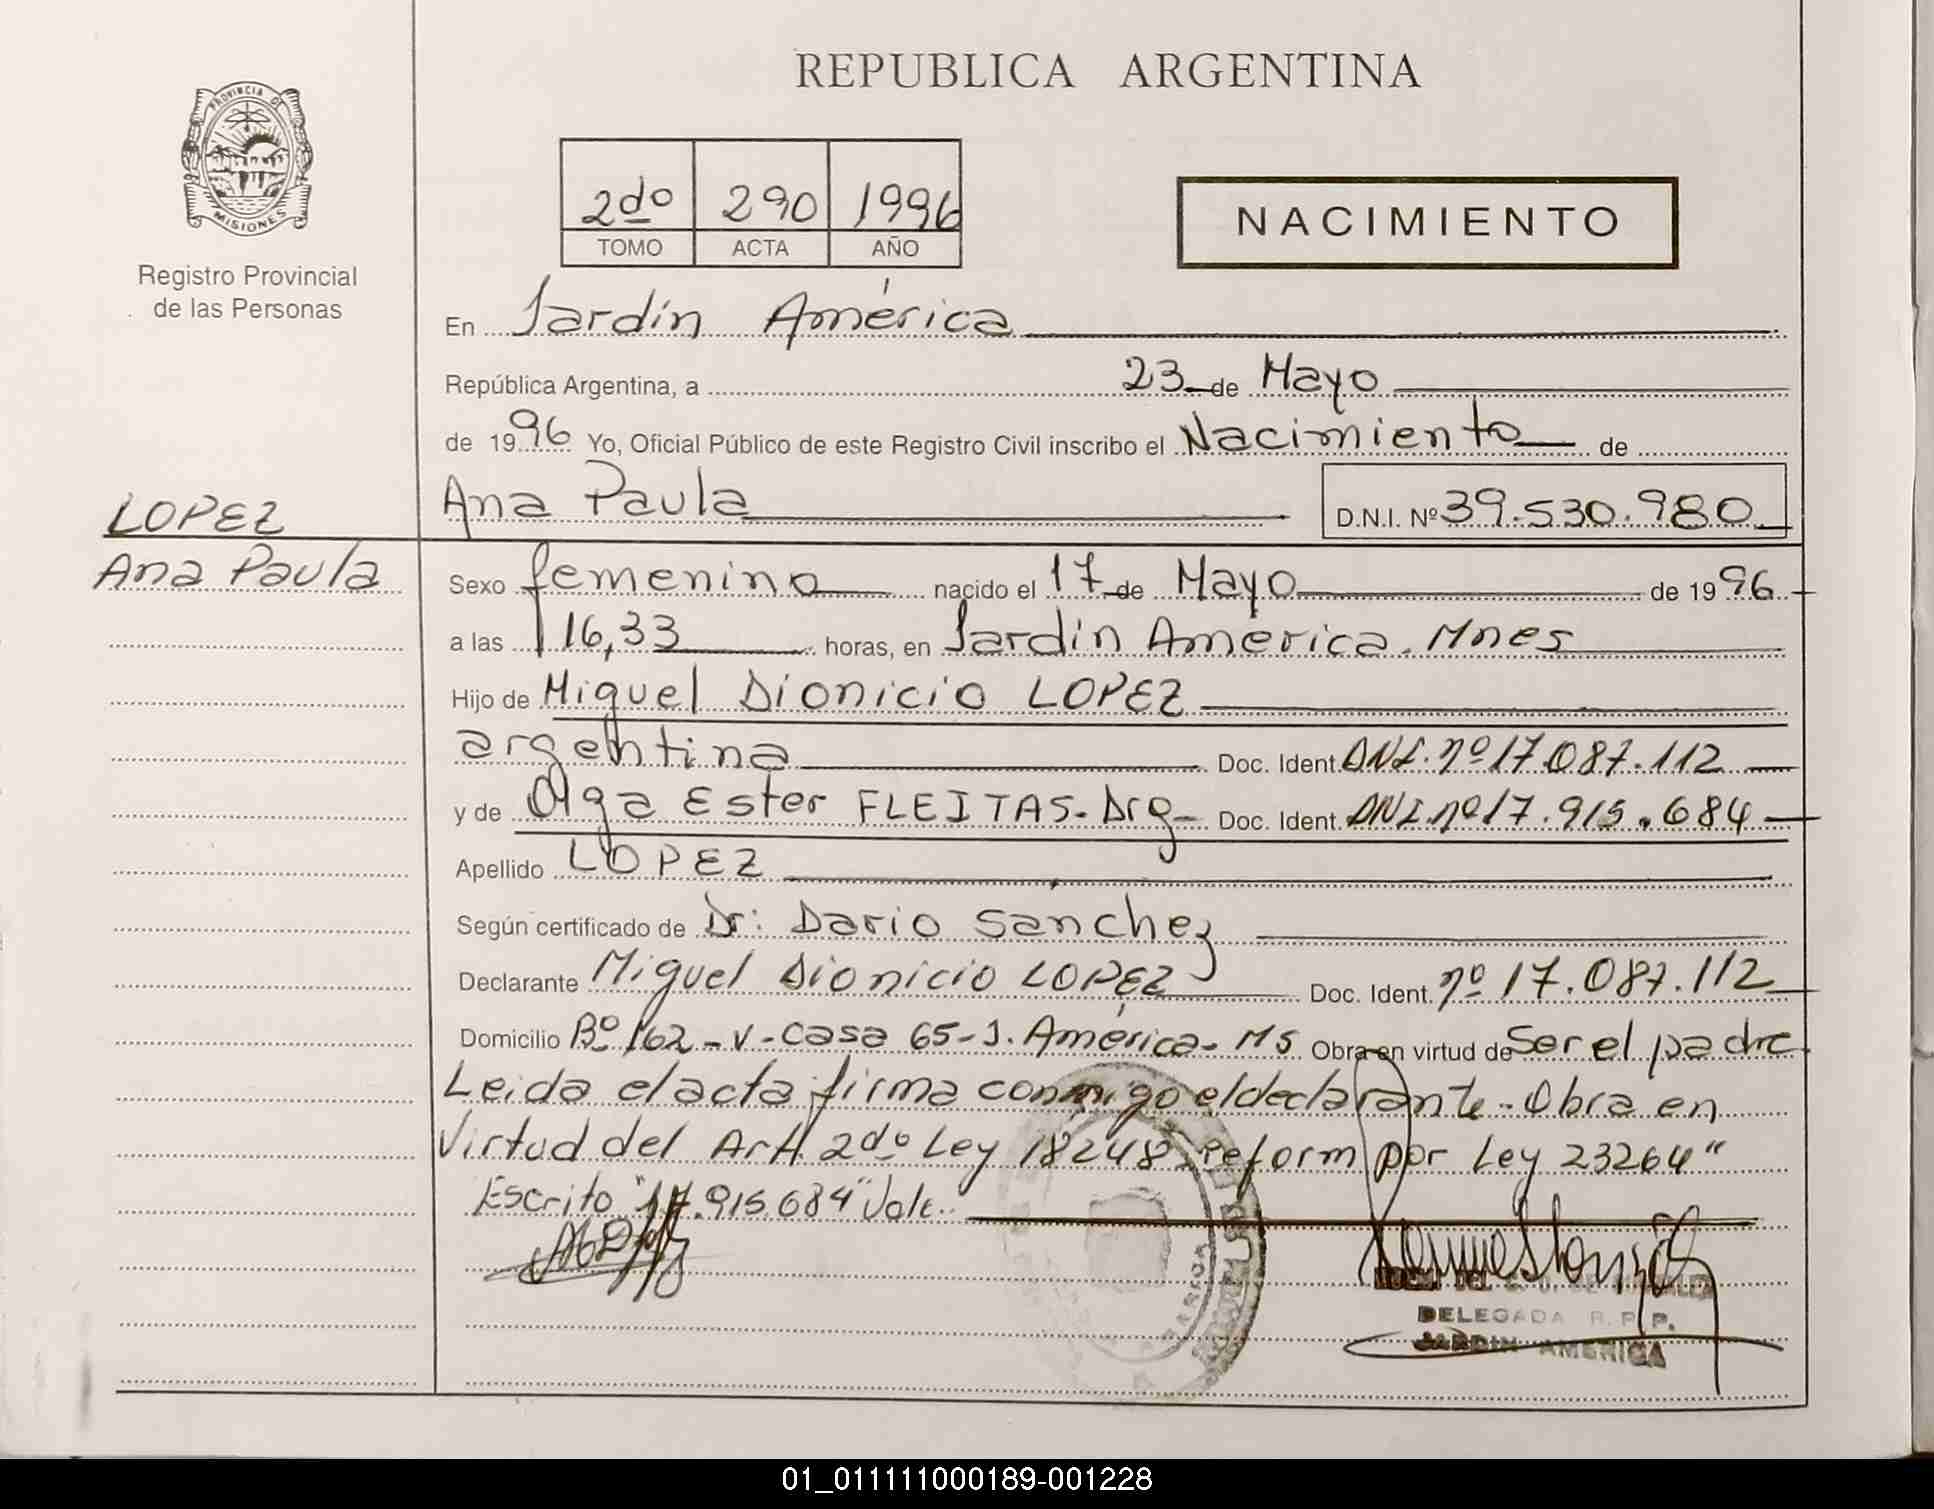 REPUBLICA ARGENTINA
PROVINCIA DE
MISIONES
Registro Provincial
de las Personas
2do 290 1996
TOMO ACTA AÑO
NACIMIENTO
En Jardín América
República Argentina, a 23 de Mayo
de 1996 Yo, Oficial Público de este Registro Civil inscribo el Nacimiento de
Ana Paula D.N.I. Nº 39.530.980
LOPEZ
Ana Paula
Sexo femenino nacido el 17 de Mayo de 1996
a las 16,33 horas, en Jardín América. Mnes
Hijo de Miguel Dionicio LOPEZ
argentina Doc. Ident. DNI. nº 17.087.112
y de Olga Ester FLEITAS. Arg Doc. Ident. DNI. nº 17.915.684
Apellido LOPEZ
Según certificado de Dr: Dario Sanchez
Declarante Miguel Dionicio LOPEZ Doc. Ident. nº 17.087.112
Domicilio Bº 162 - V - Casa 65 - J. América - MS Obra en virtud de Ser el padre
Leida el acta firma conmigo el declarante - Obra en
Virtud del Art. 2do Ley 18248 reform por Ley 23264"
Escrito "17.915.684" Vale.
DELEGADA R. P. P.
JARDIN AMERICA
01_011111000189-001228